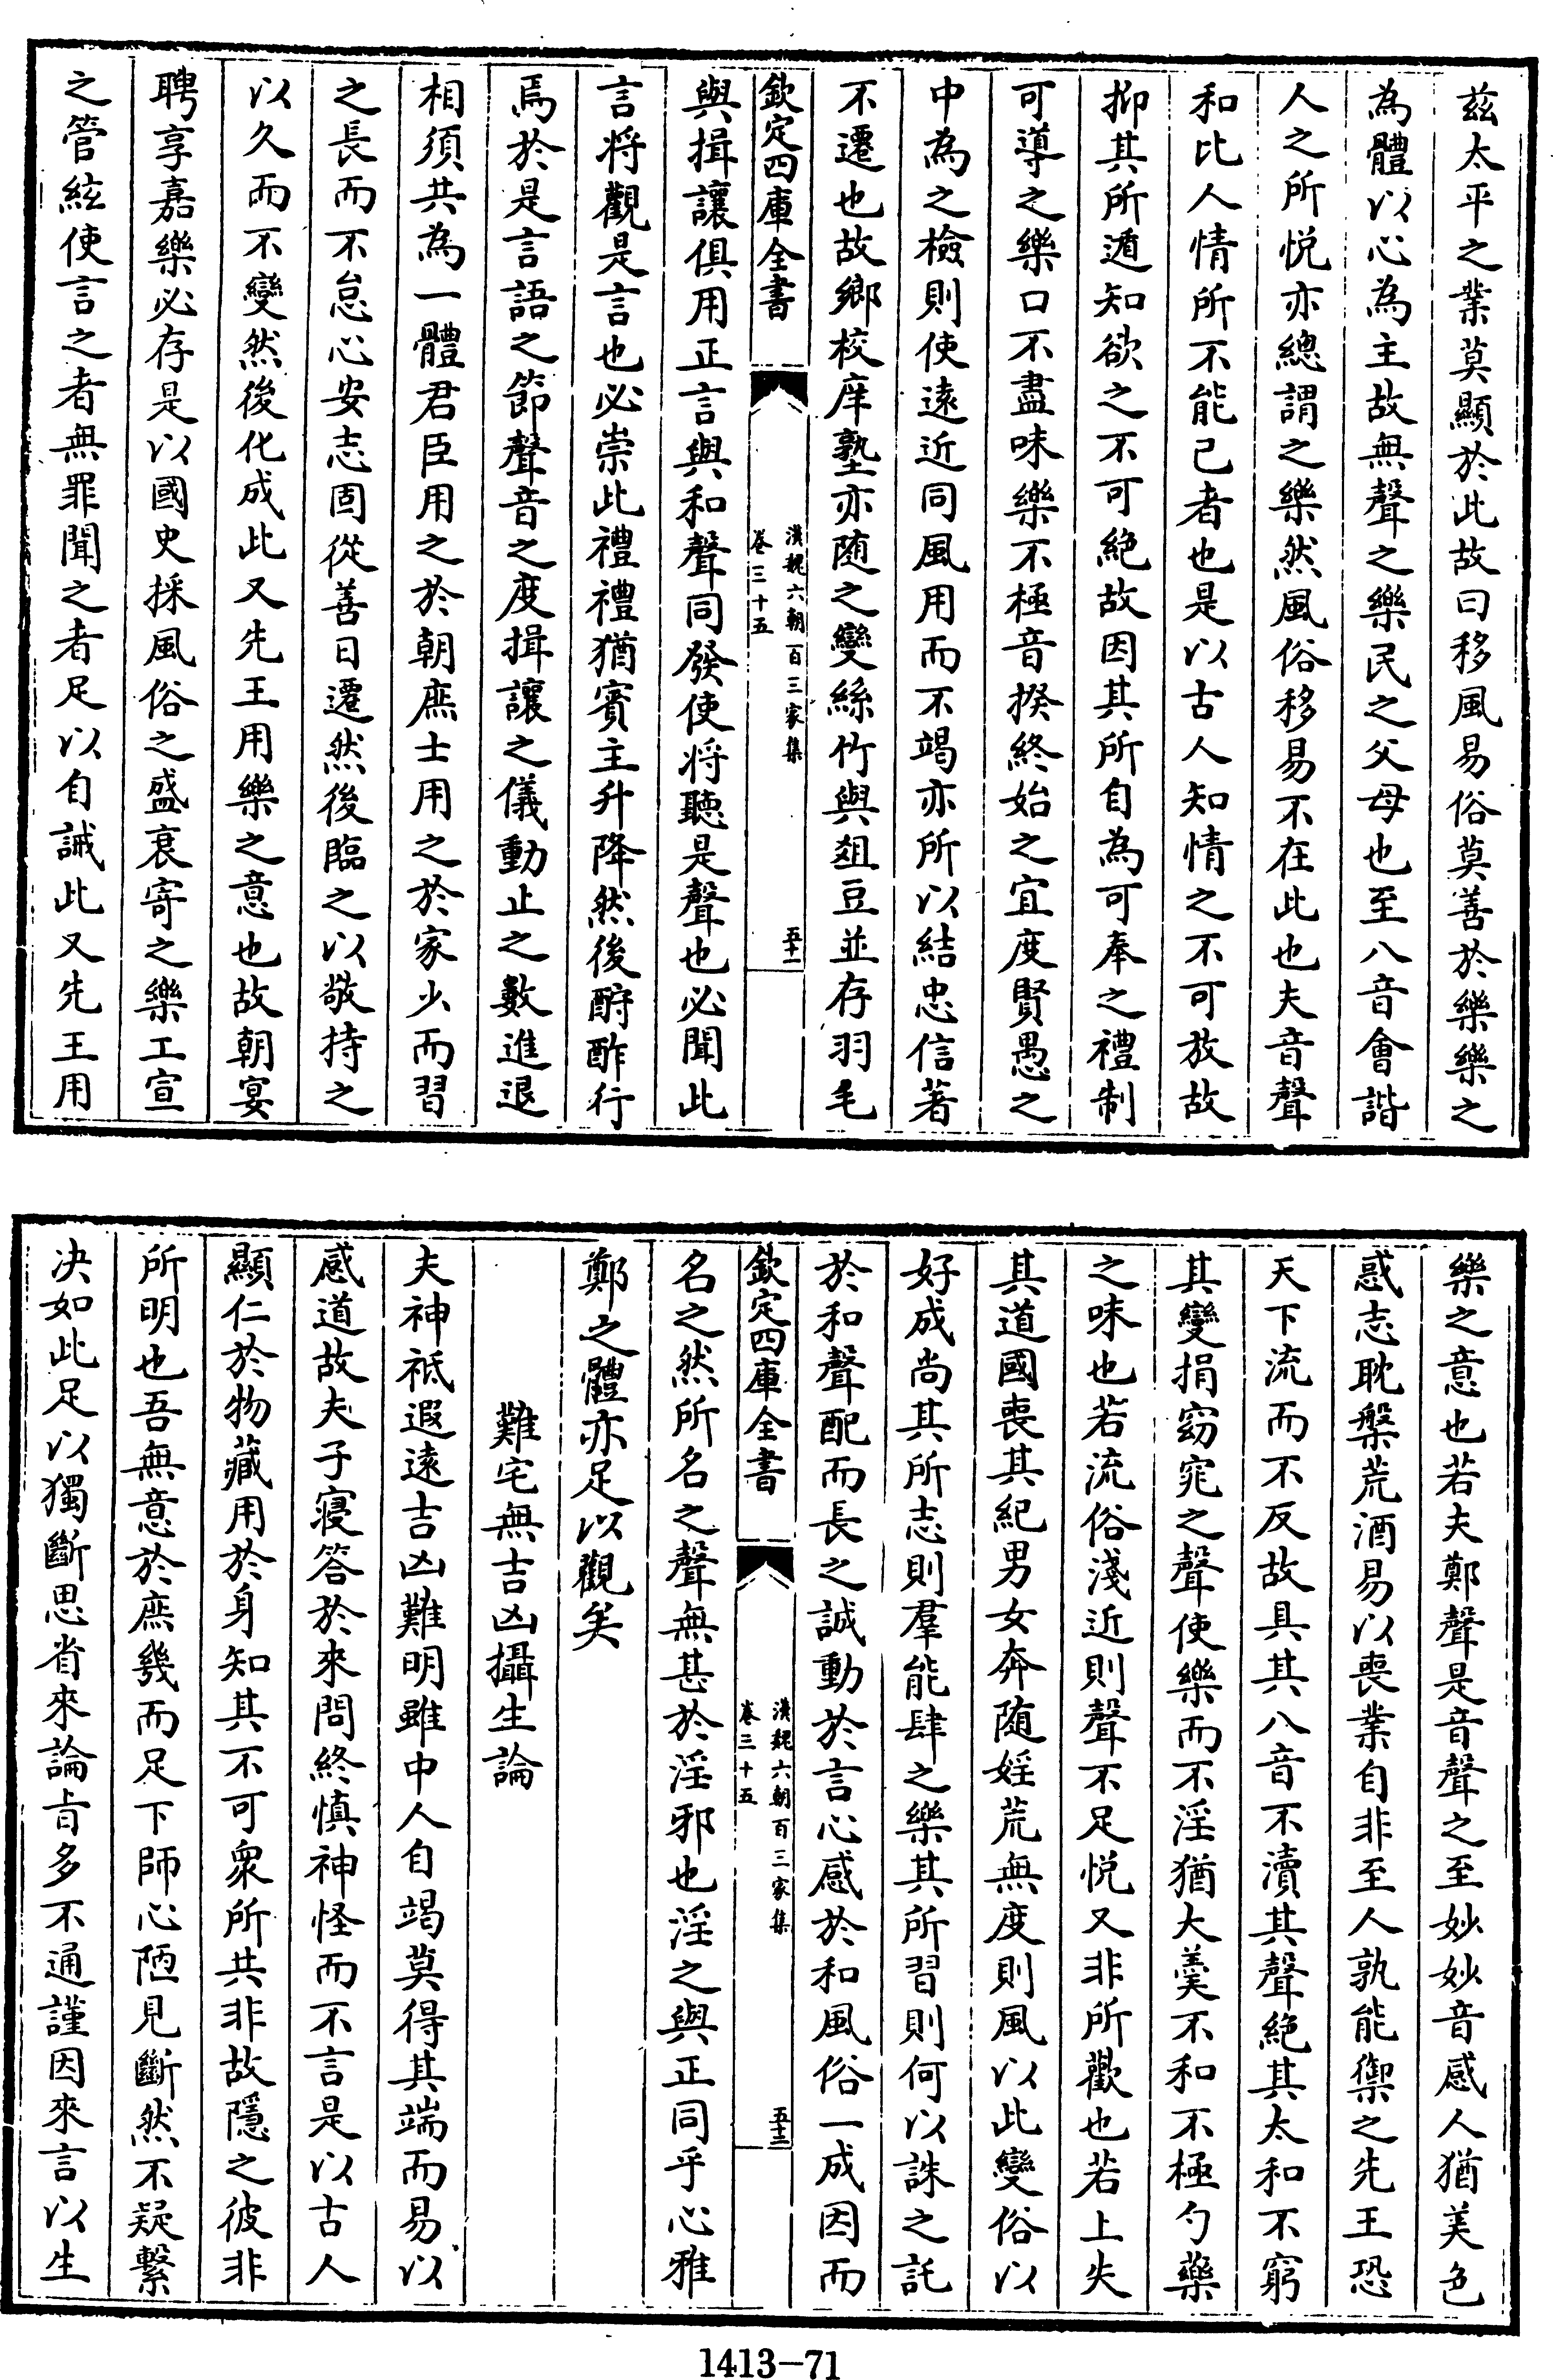 茲太平之業莫顯於此故曰移風易俗莫善於樂樂之
為體以心為主故無聲之樂民之父母也至八音會諧
人之所悦亦總謂之樂然風俗移易不在此也夫音聲
和比人情所不能已者也是以古人知情之不可放故
抑其所遁知欲之不可絶故因其所自為可奉之禮制
可導之樂口不盡味樂不極音揆終始之宜度賢愚之
中為之檢則使遠近同風用而不竭亦所以結忠信著
不遷也故鄉校庠塾亦随之變絲竹與爼豆並存羽毛
欽定四庫全書
漢魏六朝百三家集
卷三十五
五十一
與揖讓俱用正言與和聲同發使将聽是聲也必聞此
言将觀是言也必崇此禮禮猶賓主升降然後酧酢行
焉於是言語之節聲音之度揖讓之儀動止之數進退
相須共為一體君臣用之於朝庶士用之於家少而習
之長而不怠心安志固從善日遷然後臨之以敬持之
以久而不變然後化成此又先王用樂之意也故朝宴
聘享嘉樂必存是以國史採風俗之盛衰寄之樂工宣
之管絃使言之者無罪聞之者足以自誡此又先王用
樂之意也若夫鄭聲是音聲之至妙妙音感人猶美色
惑志耽槃荒酒易以喪業自非至人孰能禦之先王恐
天下流而不反故具其八音不瀆其聲絶其太和不窮
其變捐窈窕之聲使樂而不淫猶大羹不和不極勺藥
之味也若流俗淺近則聲不足悦又非所歡也若上失
其道國喪其紀男女奔随婬荒無度則風以此變俗以
好成尚其所志則羣能肆之樂其所習則何以誅之託
於和聲配而長之誠動於言心感於和風俗一成因而
欽定四庫全書
漢魏六朝百三家集
卷三十五
五十二
名之然所名之聲無甚於淫邪也淫之與正同乎心雅
鄭之體亦足以觀矣
難宅無吉凶攝生論
夫神祇遐遠吉凶難明雖中人自竭莫得其端而易以
感道故夫子寝答於來問終慎神怪而不言是以古人
顯仁於物藏用於身知其不可衆所共非故隱之彼非
所明也吾無意於庶幾而足下師心陋見斷然不疑繫
决如此足以獨斷思省來論㫖多不通謹因來言以生
1413-71